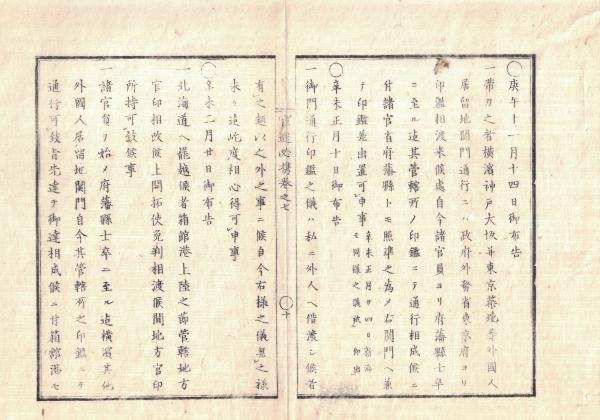 〇庚午十一月十四日御布告
一帶刀之者横濱神戸大坂并東京築地等外國人
居留地関門通行ニハ政府外務省東京府ヨリ
印鑑相渡来候處自今諸官員ヨリ府藩縣士卒
ニ至ル迠其管轄所ノ印鑑ニテ通行相成候ニ
付諸官省府藩縣トモ照準之為メ右関門ヘ兼
テ印鑑差出置可申事
辛未正月廿四日新潟
モ同様之儀
〇辛未正月十日御布告
一御門通行印鑑之儀ハ私ニ外人ヘ借渡シ候者
官途必携巻之七
〇十
有之趣以之外之事ニ候自今右様之儀無之様
来リ迠屹度相心得可申事
〇辛未二月廿日御布告
一北海道ヘ罷越候者箱館港上陸之節管轄地方
官印相改候上開拓使免判相渡候間地方官印
所持可致候事
一諸官省ヲ始ノ府藩縣士卒ニ至ル迠横濱其他
外國人居留地関門自今其管轄所之印鑑ニテ
通行可致旨先達テ御達相成候ニ付箱館港モ